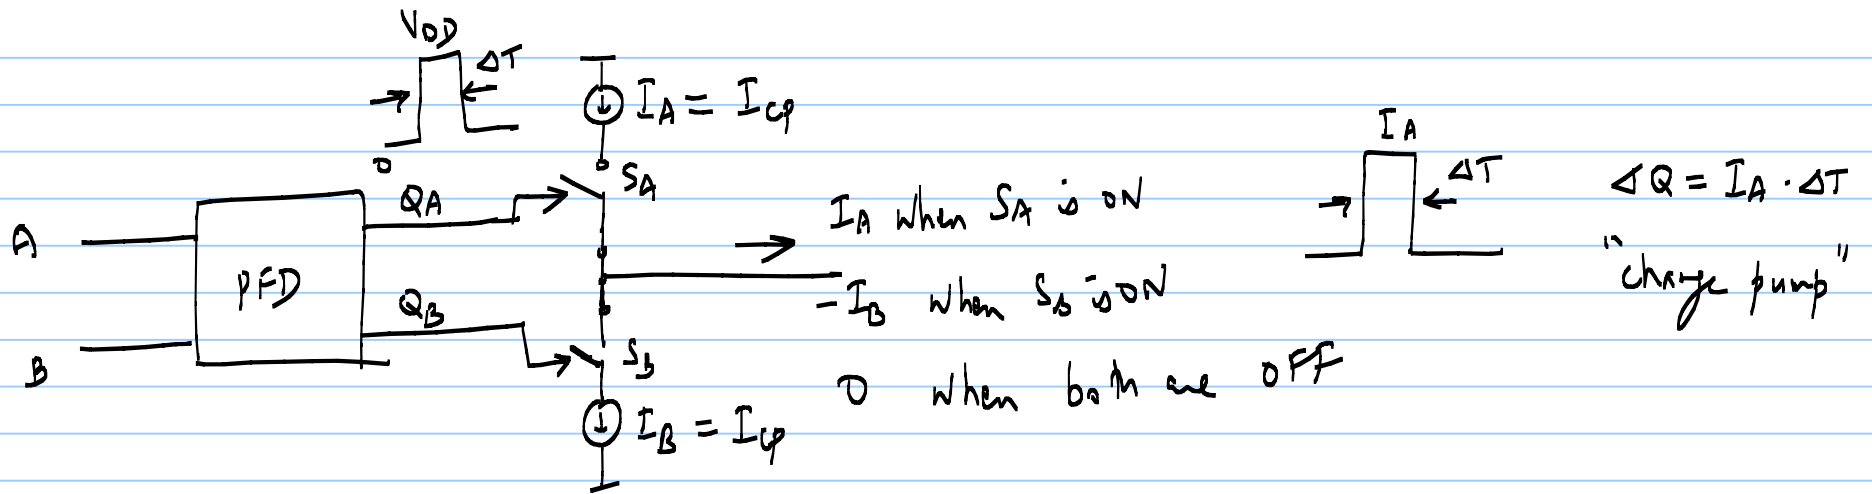 VDD
ΔT
0
I_A = I_cp
S_A
Q_A
A
PFD
Q_B
B
S_B
I_B = I_cp
I_A when S_A is ON
-I_B when S_B is ON
0 when both are OFF
I_A
ΔT
ΔQ = I_A · ΔT
"charge pump"